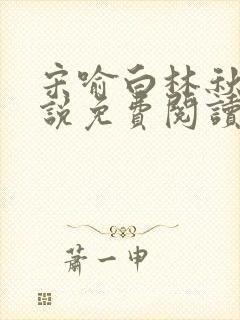 宋喻白林秋
說免費閱讀
蕭一申